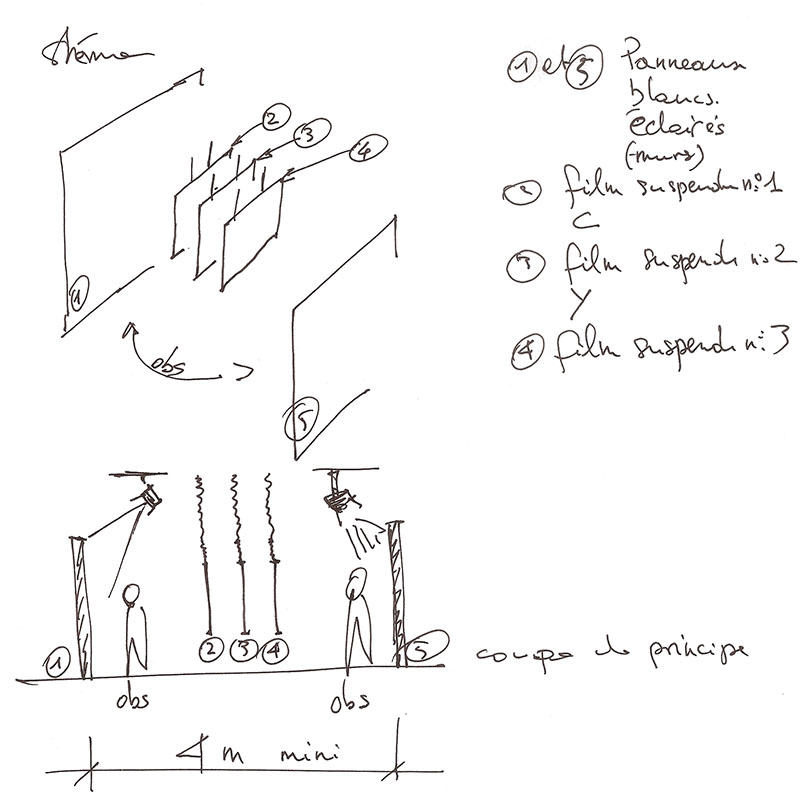 schéma
2
3
4
1
obs
5
1 et 5 Panneaux
blancs.
éclairés
(murs)
2 film suspendu n°1
C
3 film suspendu n°2
Y
4 film suspendu n°3
1
2 3 4
5
obs
obs
coupe de principe
4 m mini